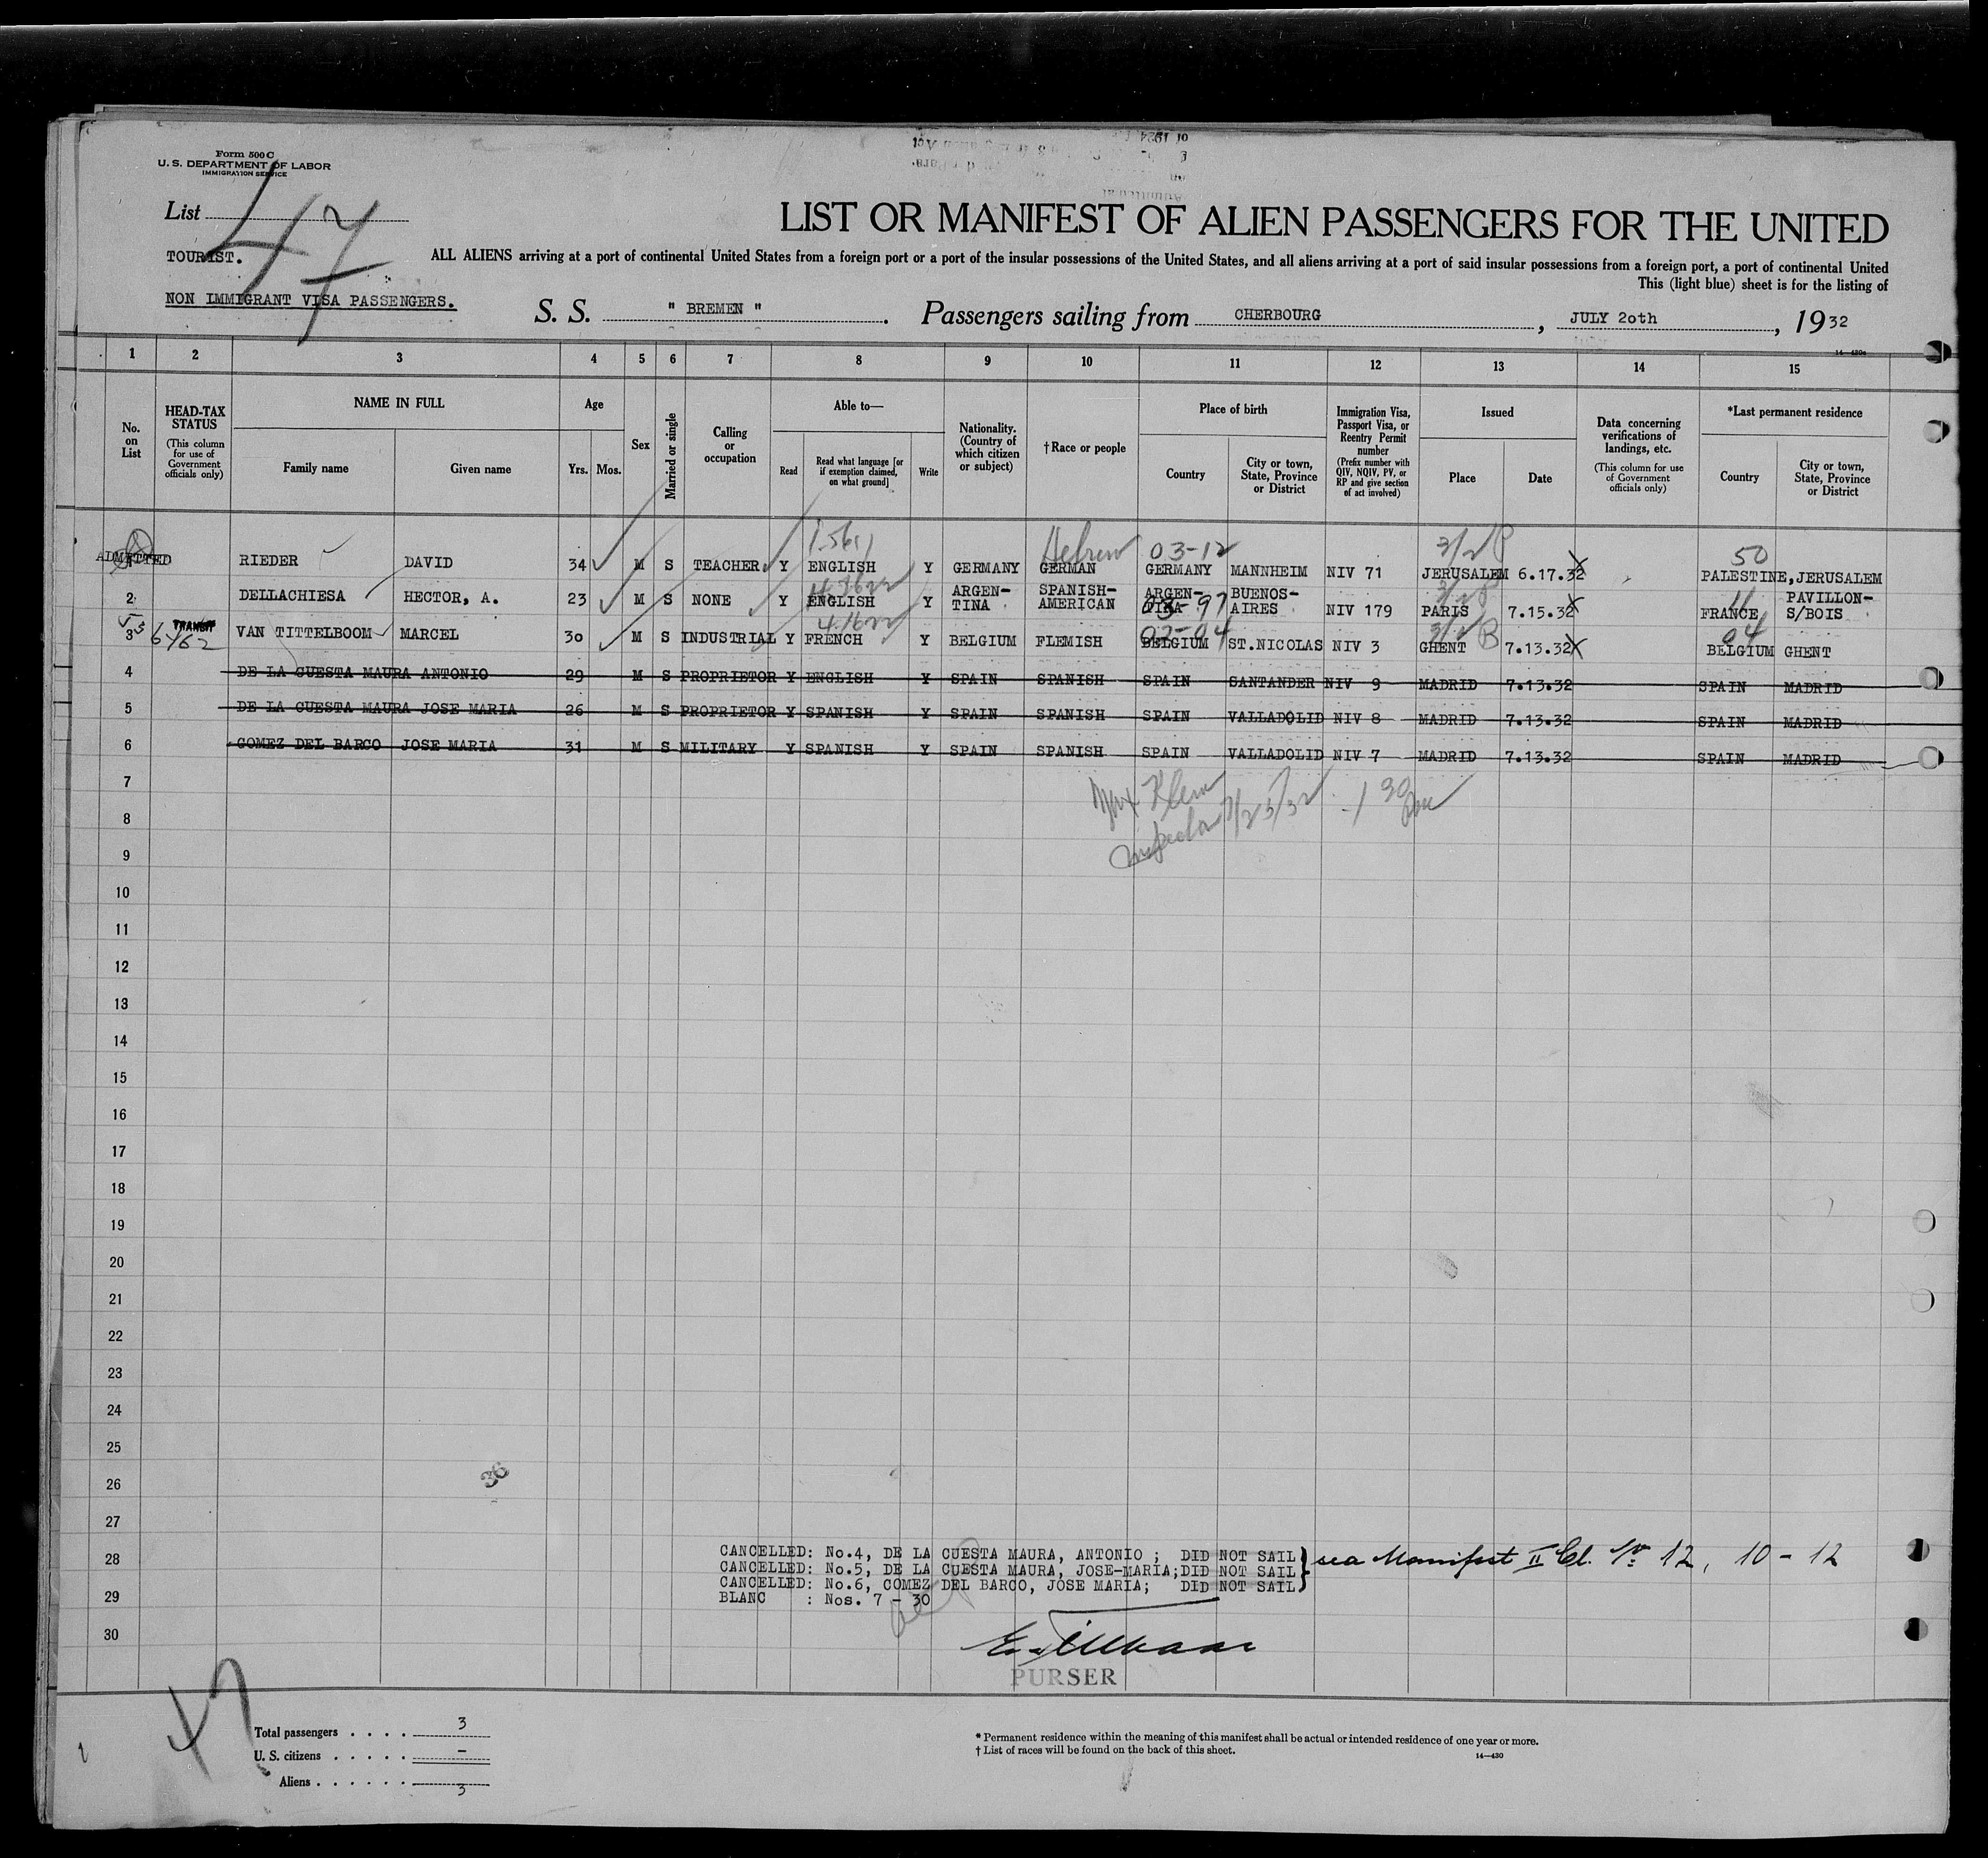 Form 500 C
U. S. DEPARTMENT OF LABOR
IMMIGRATION SERVICE
List 47
LIST OR MANIFEST OF ALIEN PASSENGERS FOR THE UNITED
TOURIST.
ALL ALIENS arriving at a port of continental United States from a foreign port or a port of the insular possessions of the United States, and all aliens arriving at a port of said insular possessions from a foreign port, a port of continental United
This (light blue) sheet is for the listing of
NON IMMIGRANT VISA PASSENGERS.
S. S. " BREMEN ". Passengers sailing from CHERBOURG, JULY 20th, 1932
14—430c
1 2 3 4 5 6 7 8 9 10 11 12 13 14 15
No. on List
HEAD-TAX STATUS
(This column for use of Government officials only)
NAME IN FULL
Family name
Given name
Age
Yrs.
Mos.
Sex
Married or single
Calling or occupation
Able to—
Read
Read what language [or if exemption claimed, on what ground]
Write
Nationality. (Country of which citizen or subject)
† Race or people
Place of birth
Country
City or town, State, Province or District
Immigration Visa, Passport Visa, or Reentry Permit number
(Prefix number with QIV, NQIV, PV, or RP and give section of act involved)
Issued
Place
Date
Data concerning verifications of landings, etc.
(This column for use of Government officials only)
*Last permanent residence
Country
City or town, State, Province or District
Hebrew 03-12 50
ADMITTED RIEDER DAVID 34 M S TEACHER Y ENGLISH Y GERMANY GERMAN GERMANY MANNHEIM NIV 71 JERUSALEM 6.17.32 PALESTINE, JERUSALEM
2 DELLACHIESA HECTOR, A. 23 M S NONE Y ENGLISH Y ARGEN-TINA SPANISH-AMERICAN ARGEN-TINA BUENOS-AIRES NIV 179 PARIS 7.15.32 FRANCE PAVILLON-S/BOIS
03-97 11
02-04 04
3 TRANSIT VAN TITTELBOOM MARCEL 30 M S INDUSTRIAL Y FRENCH Y BELGIUM FLEMISH BELGIUM ST.NICOLAS NIV 3 GHENT 7.13.32 BELGIUM GHENT
4 DE LA CUESTA MAURA ANTONIO 29 M S PROPRIETOR Y ENGLISH Y SPAIN SPANISH SPAIN SANTANDER NIV 9 MADRID 7.13.32 SPAIN MADRID
5 DE LA CUESTA MAURA JOSE MARIA 26 M S PROPRIETOR Y SPANISH Y SPAIN SPANISH SPAIN VALLADOLID NIV 8 MADRID 7.13.32 SPAIN MADRID
6 GOMEZ DEL BARCO JOSE MARIA 31 M S MILITARY Y SPANISH Y SPAIN SPANISH SPAIN VALLADOLID NIV 7 MADRID 7.13.32 SPAIN MADRID
7
Max Klein
8
Inspector 7/25/32
9
10
11
12
13
14
15
16
17
18
19
20
21
22
23
24
25
26
36
27
28
CANCELLED: No.4, DE LA CUESTA MAURA, ANTONIO ; DID NOT SAIL
CANCELLED: No.5, DE LA CUESTA MAURA, JOSE-MARIA; DID NOT SAIL
CANCELLED: No.6, COMEZ DEL BARCO, JOSE MARIA; DID NOT SAIL
sea Manifest II Cl. No. 12, 10 - 12
29
BLANC : Nos. 7 - 30
30
PURSER
47
Total passengers . . . . 3
U. S. citizens . . . . . –
Aliens . . . . . . 3
* Permanent residence within the meaning of this manifest shall be actual or intended residence of one year or more.
† List of races will be found on the back of this sheet.
14—430